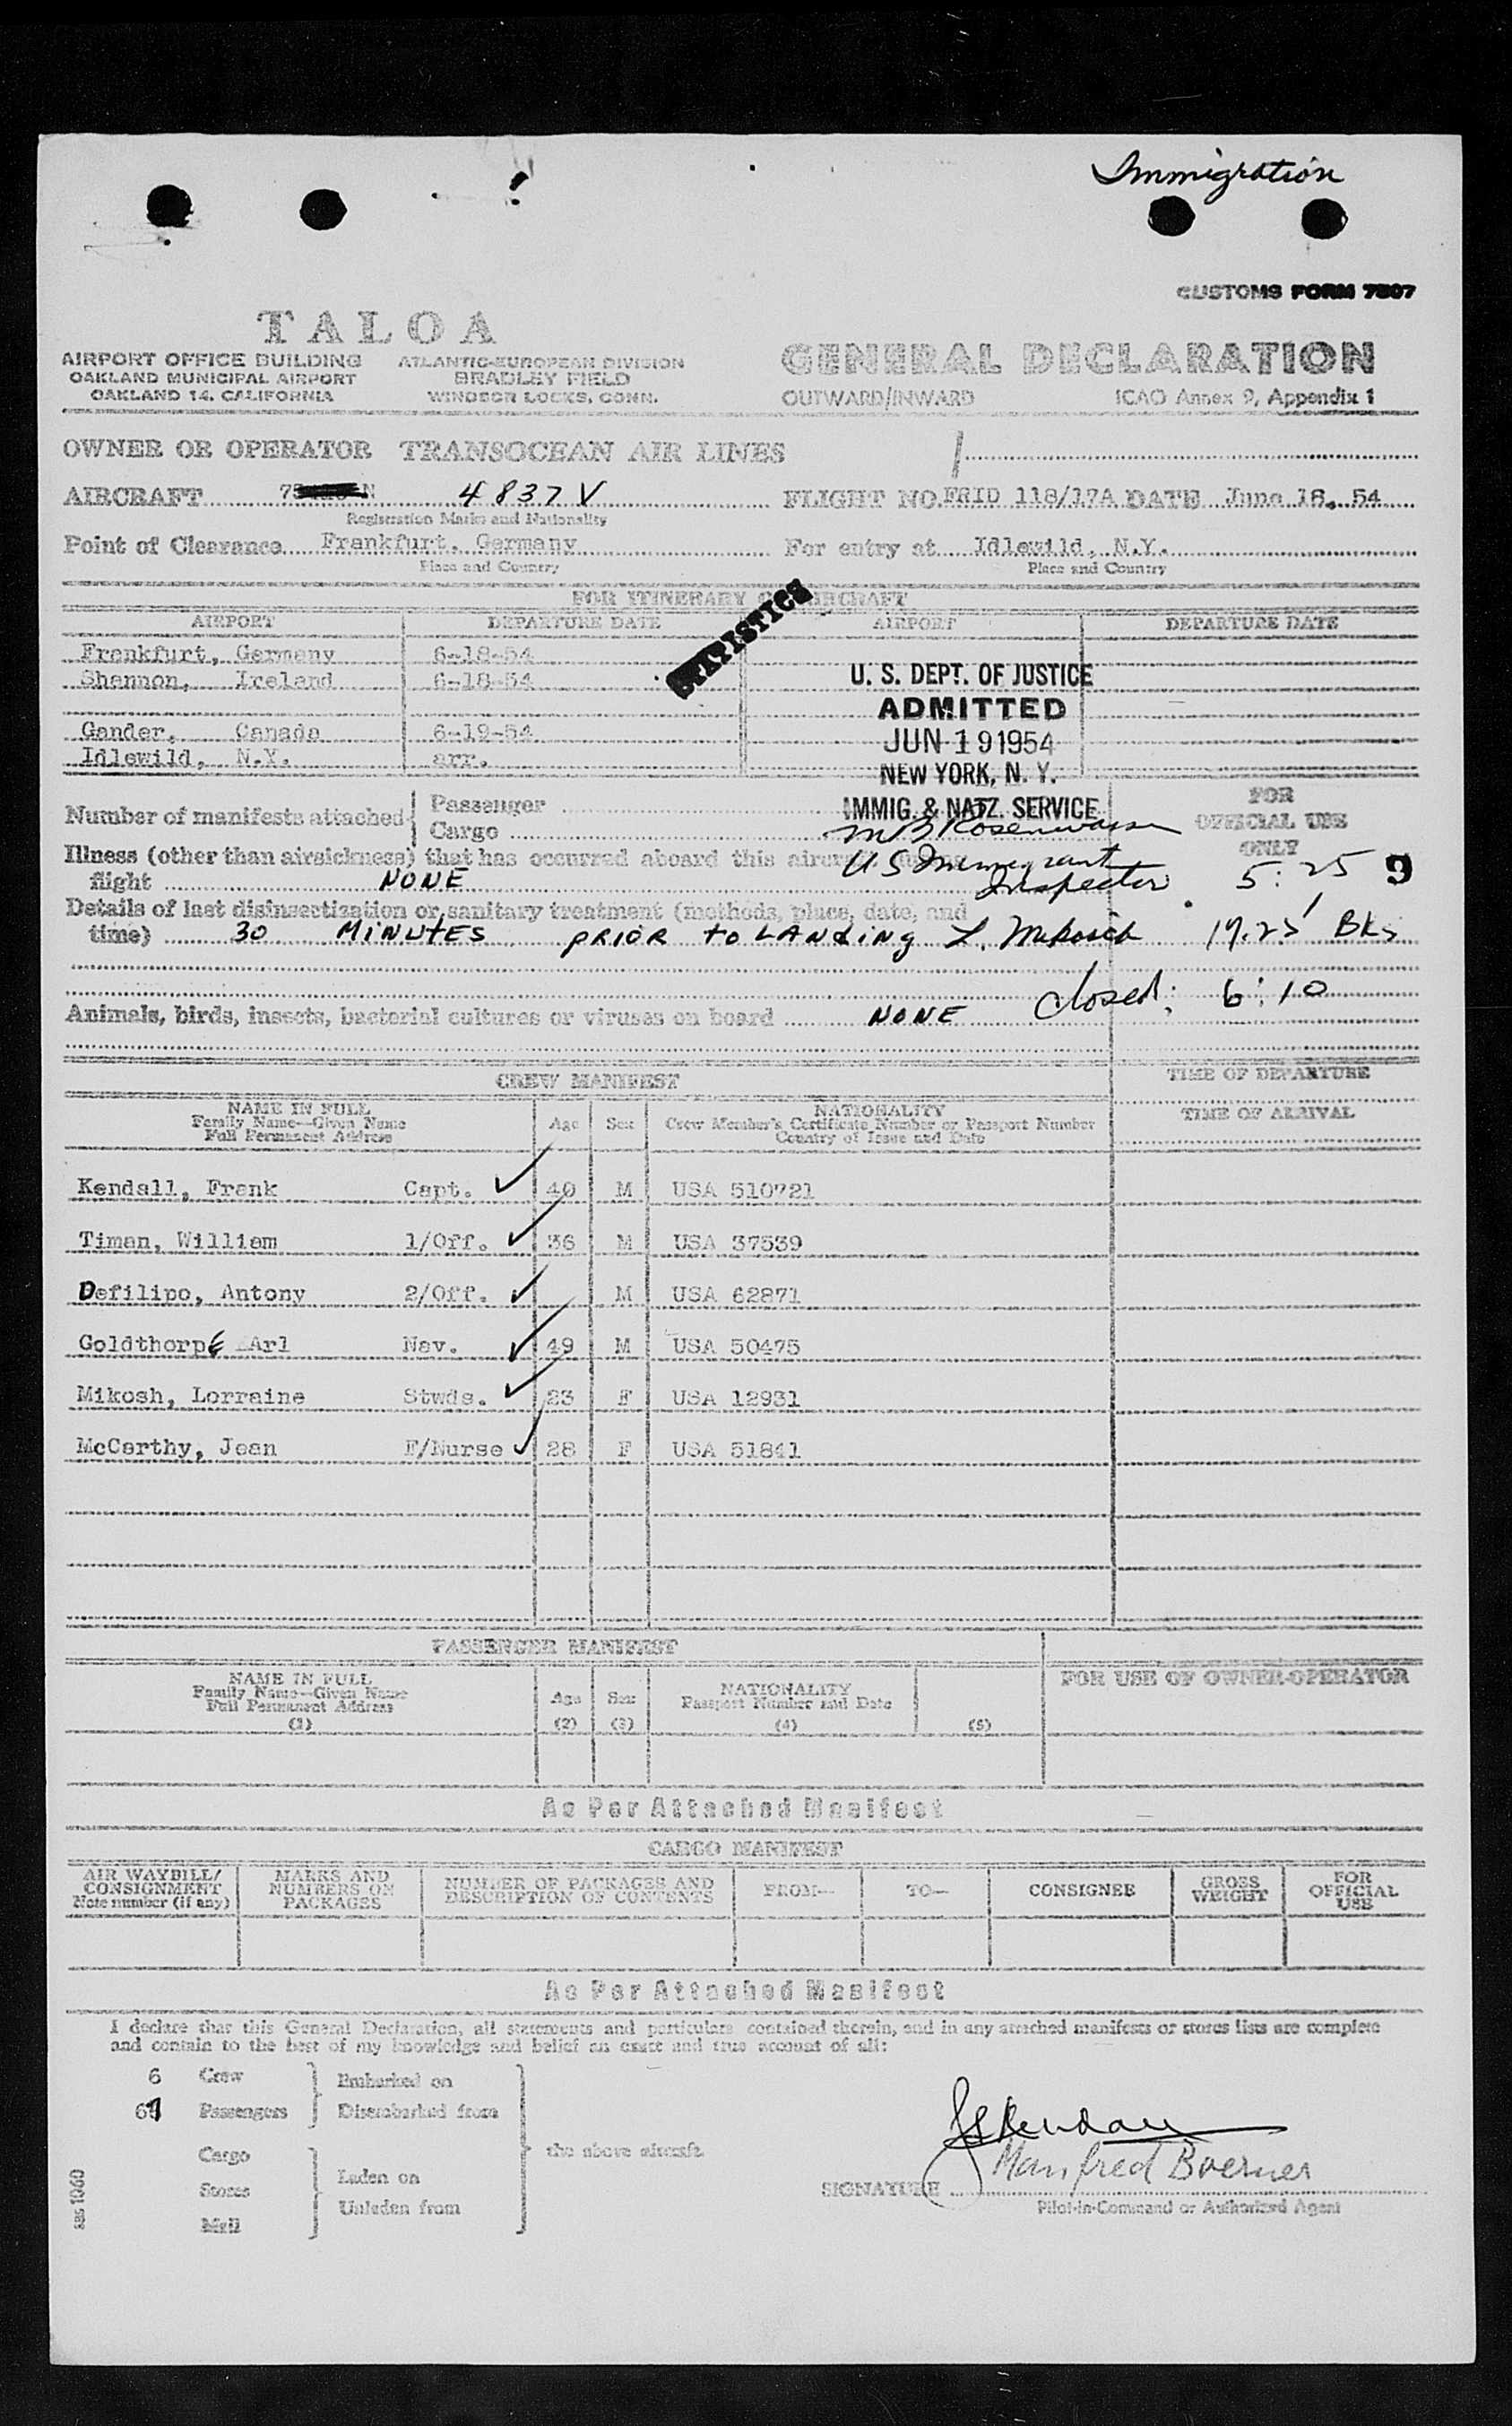 Immigration
CUSTOMS FORM 7507
TALOA
AIRPORT OFFICE BUILDING
OAKLAND MUNICIPAL AIRPORT
OAKLAND 14, CALIFORNIA
ATLANTIC-EUROPEAN DIVISION
BRADLEY FIELD
WINDSOR LOCKS, CONN.
GENERAL DECLARATION
OUTWARD/INWARD ICAO Annex 9, Appendix 1
OWNER OR OPERATOR TRANSOCEAN AIR LINES
AIRCRAFT N 4837V FLIGHT NO. FRID 118/17A DATE June 18, 54
Registration Marks and Nationality
Point of Clearance Frankfurt, Germany For entry at Idlewild, N.Y.
Place and Country Place and Country
FOR ITINERARY OF AIRCRAFT
STATISTICS
AIRPORT DEPARTURE DATE AIRPORT DEPARTURE DATE
Frankfurt, Germany 6-18-54
Shannon, Ireland 6-18-54
Gander, Canada 6-19-54
Idlewild, N.Y. arr.
U. S. DEPT. OF JUSTICE
ADMITTED
JUN 19 1954
NEW YORK, N. Y.
IMMIG. & NATZ. SERVICE
MB Rosenwasser
US Immigrant
Inspector
Number of manifests attached
Passenger
Cargo
FOR
OFFICIAL USE
ONLY
Illness (other than airsickness) that has occurred aboard this aircraft during
flight NONE 5:25 9
Details of last disinsectization or sanitary treatment (methods, place, date, and
time) 30 MINUTES PRIOR to LANDING L. Mikosch Bks
closed: 6:10
Animals, birds, insects, bacterial cultures or viruses on board NONE
CREW MANIFEST
TIME OF DEPARTURE
TIME OF ARRIVAL
NAME IN FULL
Family Name—Given Name
Full Permanent Address
Age Sex
NATIONALITY
Crew Member's Certificate Number or Passport Number
Country of Issue and Date
Kendall, Frank Capt. 40 M USA 510721
Timan, William 1/Off. 36 M USA 37539
Defilipo, Antony 2/Off. M USA 62871
Goldthorpe Arl Nav. 49 M USA 50475
Mikosh, Lorraine Stwds. 23 F USA 12931
McCarthy, Jean F/Nurse 28 F USA 51841
PASSENGER MANIFEST
NAME IN FULL
Family Name—Given Name
Full Permanent Address
(1)
Age
(2)
Sex
(3)
NATIONALITY
Passport Number and Date
(4)
(5)
FOR USE OF OWNER-OPERATOR
As Per Attached Manifest
CARGO MANIFEST
AIR WAYBILL/
CONSIGNMENT
Note number (if any)
MARKS AND
NUMBERS ON
PACKAGES
NUMBER OF PACKAGES AND
DESCRIPTION OF CONTENTS
FROM—
TO—
CONSIGNEE
GROSS
WEIGHT
FOR
OFFICIAL
USE
As Per Attached Manifest
I declare that this General Declaration, all statements and particulars contained therein, and in any attached manifests or stores lists are complete
and contain to the best of my knowledge and belief an exact and true account of all:
6 Crew
Passengers
Embarked on
Disembarked from
Cargo
Stores
Mail
Laden on
Unladen from
the above aircraft.
Manfred Boerner
SIGNATURE
Pilot-in-Command or Authorized Agent